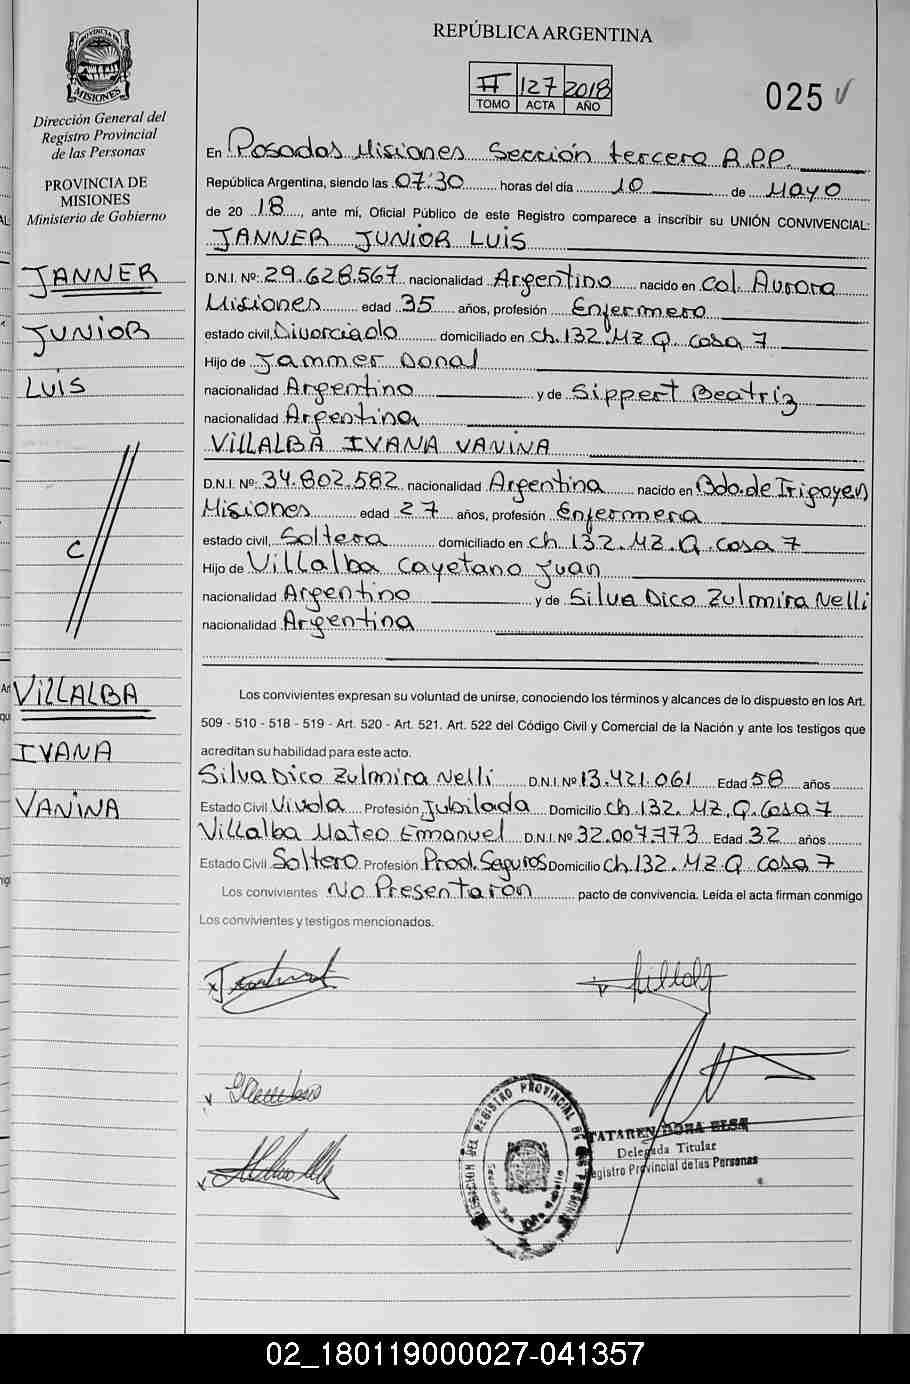 REPÚBLICA ARGENTINA
PROVINCIA DE
MISIONES
II 127 2018
TOMO ACTA AÑO
025
Dirección General del
Registro Provincial
de las Personas
PROVINCIA DE
MISIONES
Ministerio de Gobierno
JANNER
JUNIOR
LUIS
C
VILLALBA
IVANA
VANINA
En Posadas Misiones Sección tercera R.P.P.
República Argentina, siendo las 07:30 horas del día 10 de Mayo
de 20 18, ante mí, Oficial Público de este Registro comparece a inscribir su UNIÓN CONVIVENCIAL:
JANNER JUNIOR LUIS
D.N.I. Nº: 29.628.567 nacionalidad Argentino nacido en Col. Aurora
Misiones edad 35 años, profesión Enfermero
estado civil, Divorciado domiciliado en ch. 132. MZ Q. casa 7
Hijo de Jammer Donal
nacionalidad Argentino y de Sippert Beatriz
nacionalidad Argentina
VILLALBA IVANA VANINA
D.N.I. Nº: 34.802.582 nacionalidad Argentina nacido en Bdo. de Irigoyen
Misiones edad 27 años, profesión Enfermera
estado civil, Soltera domiciliado en ch. 132. MZ. Q. casa 7
Hijo de Villalba Cayetano Juan
nacionalidad Argentino y de Silva Dico Zulmira Nelli
nacionalidad Argentina
Los convivientes expresan su voluntad de unirse, conociendo los términos y alcances de lo dispuesto en los Art.
509 - 510 - 518 - 519 - Art. 520 - Art. 521. Art. 522 del Código Civil y Comercial de la Nación y ante los testigos que
acreditan su habilidad para este acto.
Silva Dico Zulmira Nelli D.N.I. Nº 13.421.061 Edad 58 años
Estado Civil Viuda Profesión Jubilada Domicilio ch. 132. MZ. Q. Casa 7
Villalba Mateo Emanuel D.N.I. Nº 32.007.773 Edad 32 años
Estado Civil Soltero Profesión Prod. Seguros Domicilio ch. 132. MZ Q casa 7
Los convivientes No Presentaron pacto de convivencia. Leída el acta firman conmigo
Los convivientes y testigos mencionados.
TATAREN DORA ELSA
Delegada Titular
Registro Provincial de las Personas
02_180119000027-041357